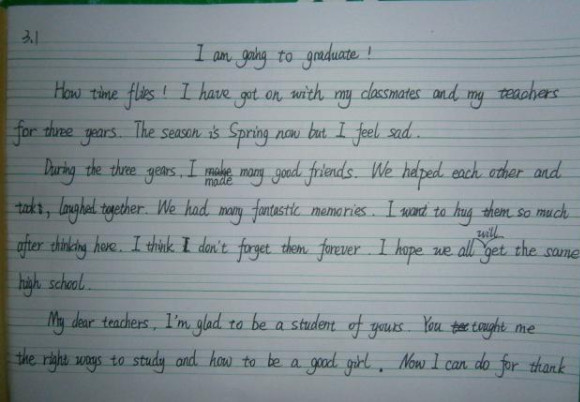 3.1
I am going to graduate !
How time flies ! I have got on with my classmates and my teachers
for three years. The season is Spring now but I feel sad.
During the three years, I made many good friends. We helped each other and
laughed together. We had many fantastic memories. I want to hug them so much
after thinking here. I think I don't forget them forever. I hope we all will get the same
high school.
My dear teachers, I'm glad to be a student of yours. You tought me
the right ways to study and how to be a good girl. Now I can do for thank